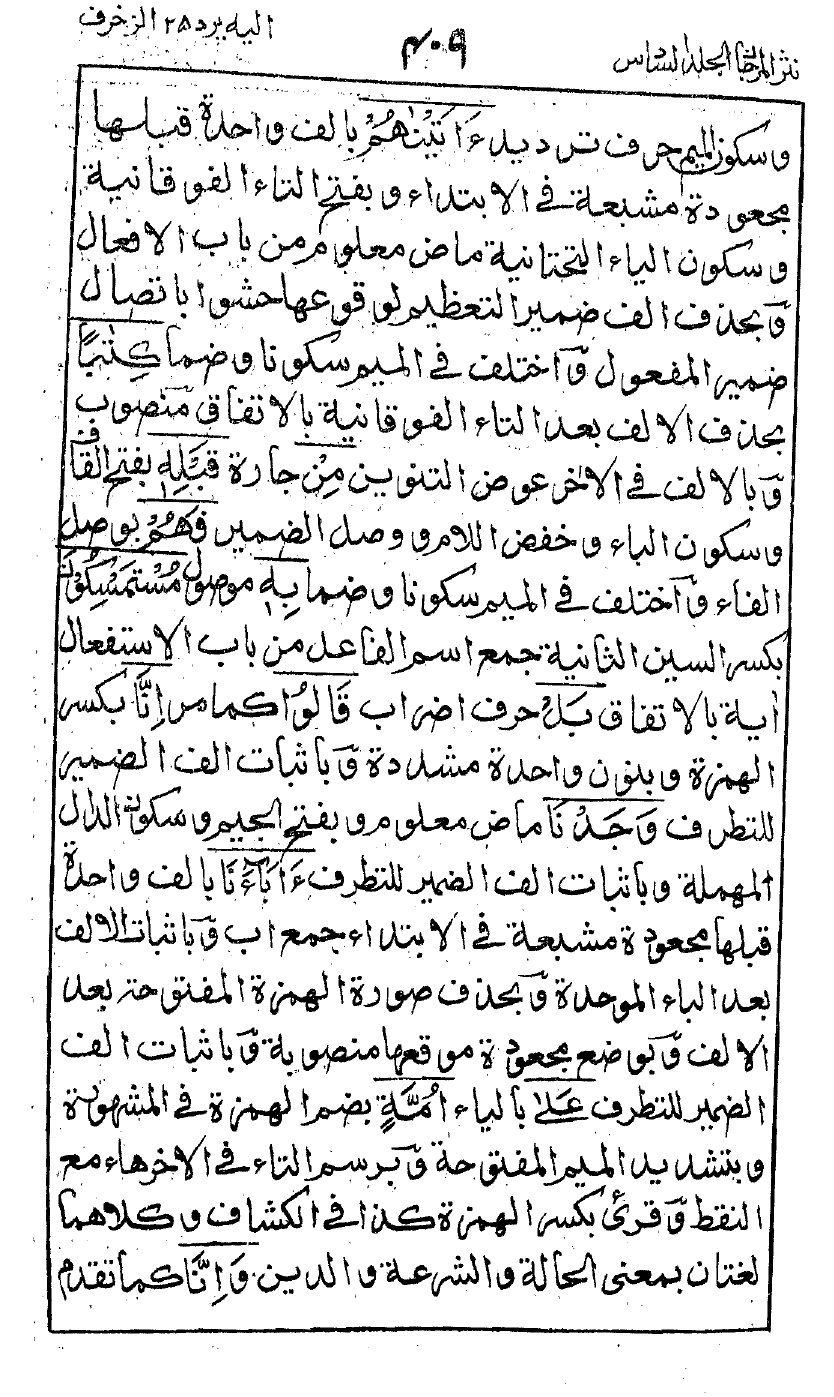 نثر المرجان الجلد السادس
۴۰۹
اليه يرد ۲۵ الزخرف
وسكون الميم حرف ترديد ءَاتَيْنٰهُمْ بالف واحدة قبلها
مجعودة مشبعة في الابتداء وبفتح التاء الفوقانية
وسكون الياء التحتانية ماض معلوم من باب الافعال
وبحذف الف ضمير التعظيم لوقوعها حشوا باتصال
ضمير المفعول واختلف في الميم سكونا وضما كِتٰبًا
بحذف الالف بعد التاء الفوقانية بالاتفاق منصوب
وبالالف في الاخر عوض التنوين مِنْ جارة قَبْلِهٖ بفتح القاف
وسكون الباء وخفض اللام ووصل الضمير فَهُمْ بوصل
الفاء واختلف في الميم سكونا وضما بِهٖ موصول مُسْتَمْسِكُوْنَ
بكسر السين الثانية جمع اسم الفاعل من باب الاستفعال
اية بالاتفاق بَلْ حرف اضراب قَالُوْا كما مر اِنَّا بكسر
الهمزة وبنون واحدة مشددة وباثبات الف الضمير
للتطرف وَجَدْنَا ماض معلوم وبفتح الجيم وسكون الدال
المهملة وباثبات الف الضمير للتطرف ءَابَآءَنَا بالف واحدة
قبلها مجعودة مشبعة في الابتداء جمع اب وباثبات الالف
بعد الباء الموحدة وبحذف صورة الهمزة المفتوحة بعد
الالف وبوضع مجعودة موقعها منصوبة وباثبات الف
الضمير للتطرف عَلٰى بالياء اُمَّةٍ بضم الهمزة في المشهورة
وبتشديد الميم المفتوحة وبرسم التاء في الاخر هاء مع
النقط وقرئ بكسر الهمزة كذا في الكشاف وكلاهما
لغتان بمعنى الحالة والشرعة والدين وَاِنَّا كما تقدم